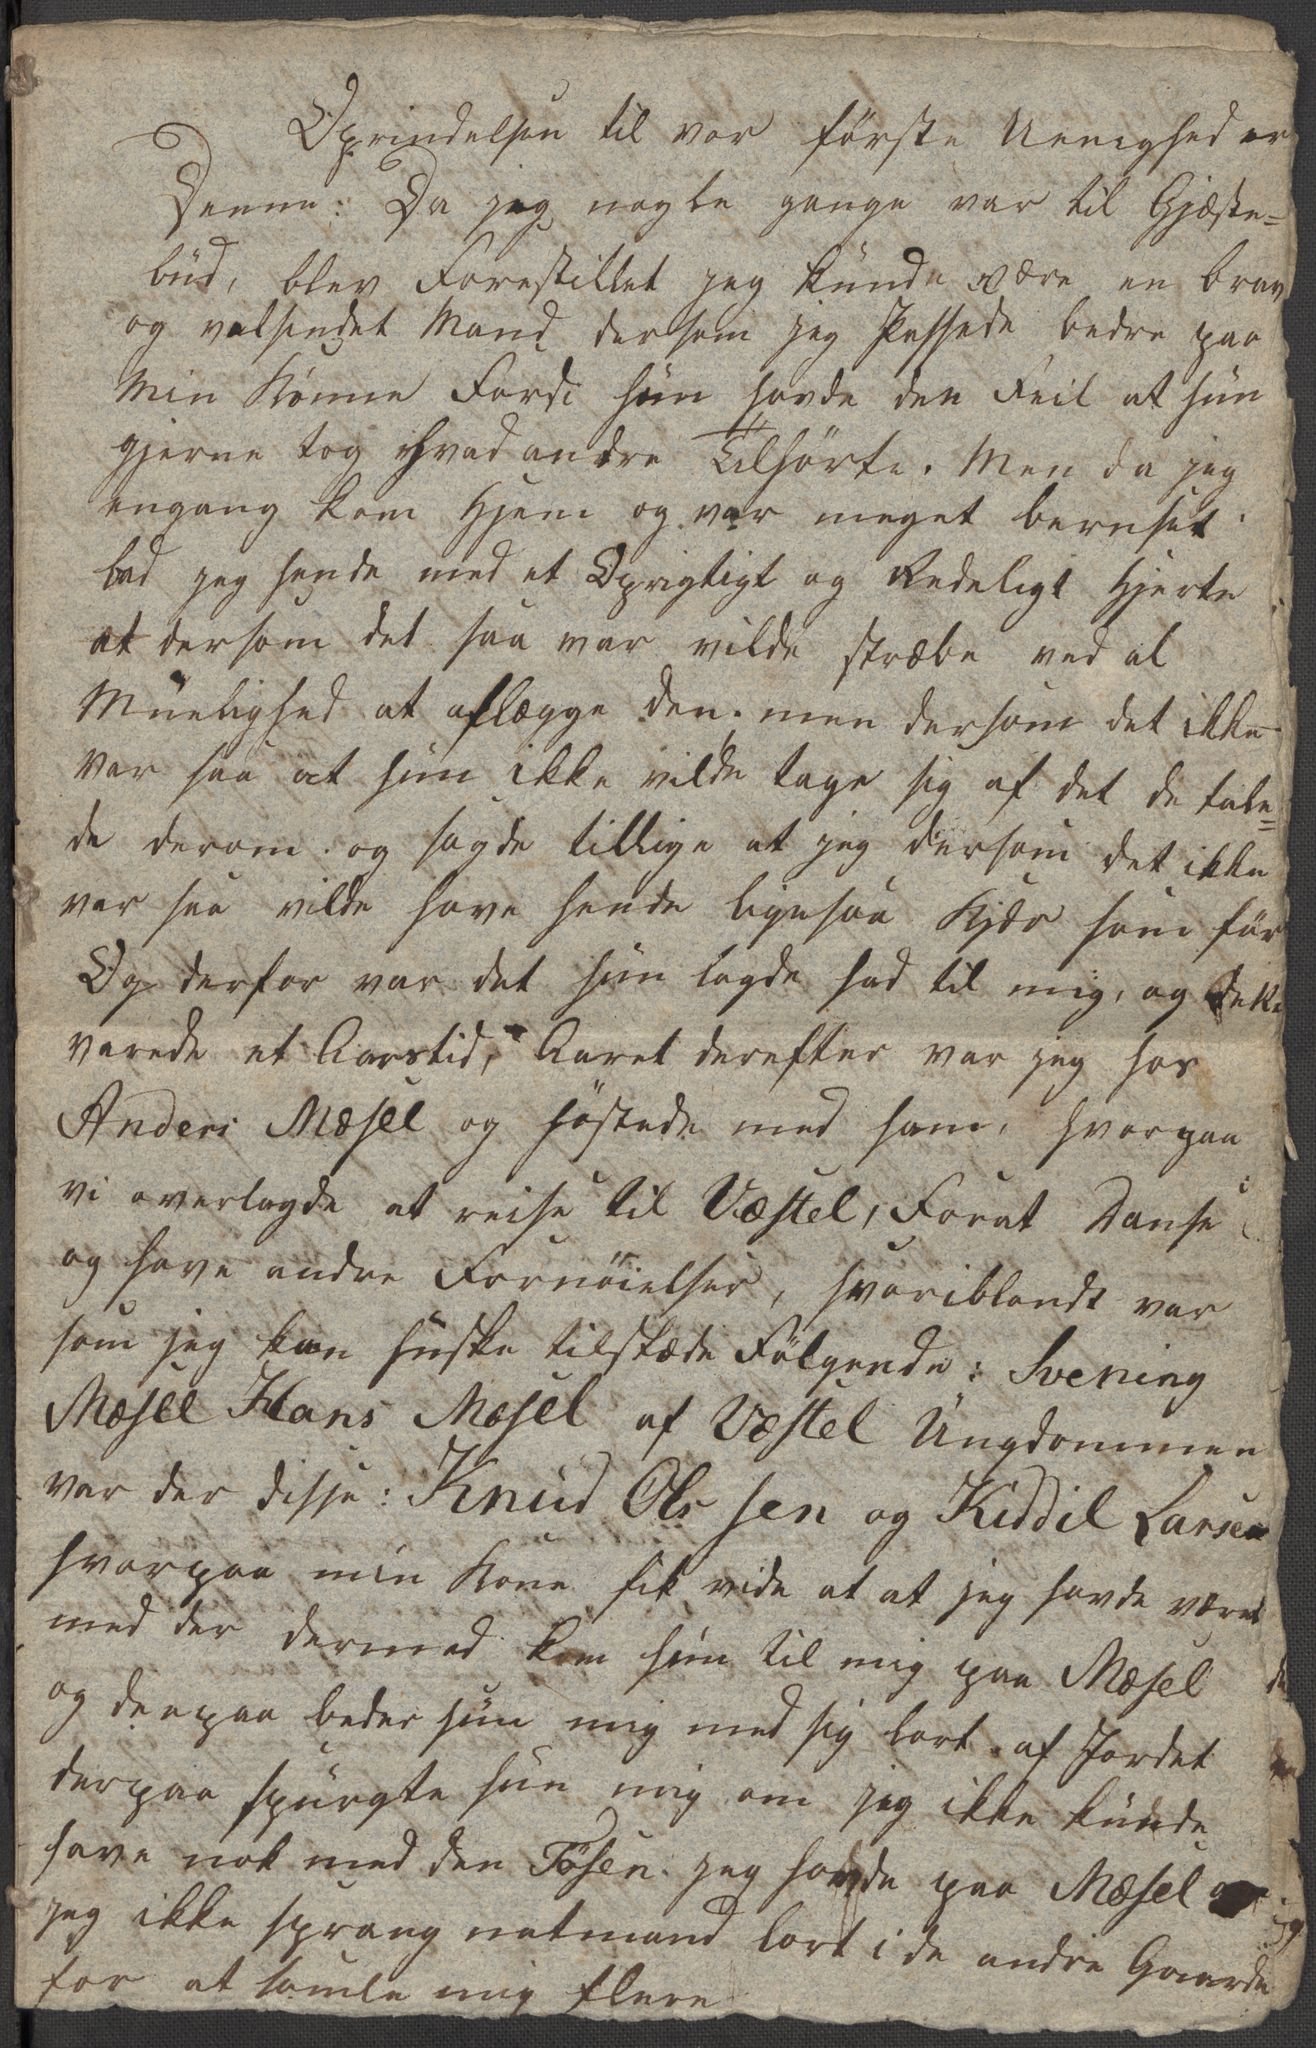 Oprindelsen til vor første Uenighed er
Denne: Da jeg nogle gange var til Gjæste=
bud, blev Forestillet jeg kunde være en brav
og velhendet Mand dersom jeg Passede bedre paa
Min Konne Fordi hun havde den Feil at hun
gjerne tog hvad andre Tilhørte. Men da jeg
engang kom Hjem og var meget beruset
bad jeg hende med et Oprigtigt og Redeligt Hjerte
at dersom det saa var vilde stræbe ved al
Muelighed at aflægge den. men dersom det ikke
var saa at hun ikke vilde tage sig af det de tale=
de derom. og sagde tillige at jeg dersom det ikke
var saa vilde have hende ligesaa Kjær som før
Og derfor var det hun lagde had til mig, og dette
varede et Aarstid, Aaret derefter var jeg hos
Anders Mæsel og høstede med ham, hvorpaa
vi overlagde at reise til Væstel, Forat Danse
og have andre Fornøielser, hvoriblandt var
som jeg kan huske tilstæde Følgende: Svening
Mæsel Hans Mæsel af Væstel Ungdommen
var der disse: Knud Olssen og Kiddil Larsen
hvorpaa min Kone fik vide at at jeg havde været
med der dermed kom hun til mig paa Mæsel
og derpaa beder hun mig med sig bort af Jordet
derpaa spurgte hun mig om jeg ikke kunde
have nok med den Tøsen jeg havde paa Mæsel
jeg ikke sprang natmand bort i de andre Gaarde
for at samle mig flere